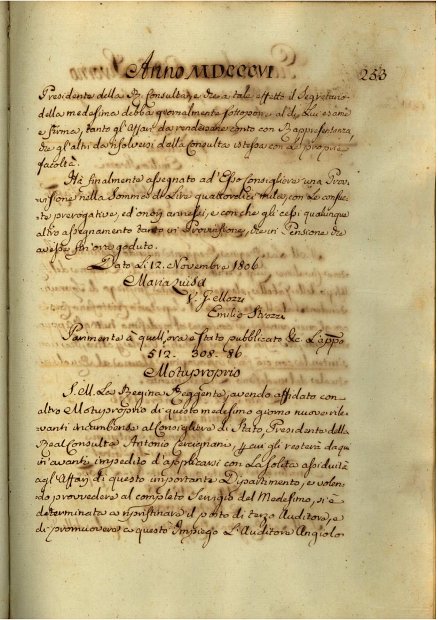 Anno MDCCCVI
253
Presidente della R. Consulta, e che a tale effetto il Segretario
della medesima debba giornalmente sottoporre al di Lui esame
e firma, tanto gl'Affari da rendersene conto con Rappresentanza,
che gl'altri da risolversi dalla Consulta istessa con le proprie
facoltà.
Ha finalmente assegnato ad Esso Consigliere una Prov-
visione nella Somma di Lire quattordici mila, con le consuete
prerogative, ed onori annessi, e con che gli cessi qualunque
altro assegnamento tanto in Provvisione, che in Pensione che
avesse fin'ora goduto.
Dato Li 12. Novembre 1806
Maria Luisa
V. J. Ellozzi
Emilio Strozzi
Parimente à quell'ora e stato pubblicato &c. L'app.o
512. 308. 86
Motuproprio
S. M. La Regina Reggente, avendo affidato con
altro Motuproprio di questo medesimo giorno nuove rile-
vanti incumbenze al Consigliere di Stato, Presidente della
Real Consulta Antonio Cercignani, per cui gli resterà da qui
in avanti impedito d'applicarsi con La solita assiduità
agl'Affari di questo importante Dipartimento, e volen-
do provvedere al completo Servizio del Medesimo, si è
determinata a ripristinare il posto di terzo Auditore, e
di promuovere a questo Impiego L'Auditore Angiolo